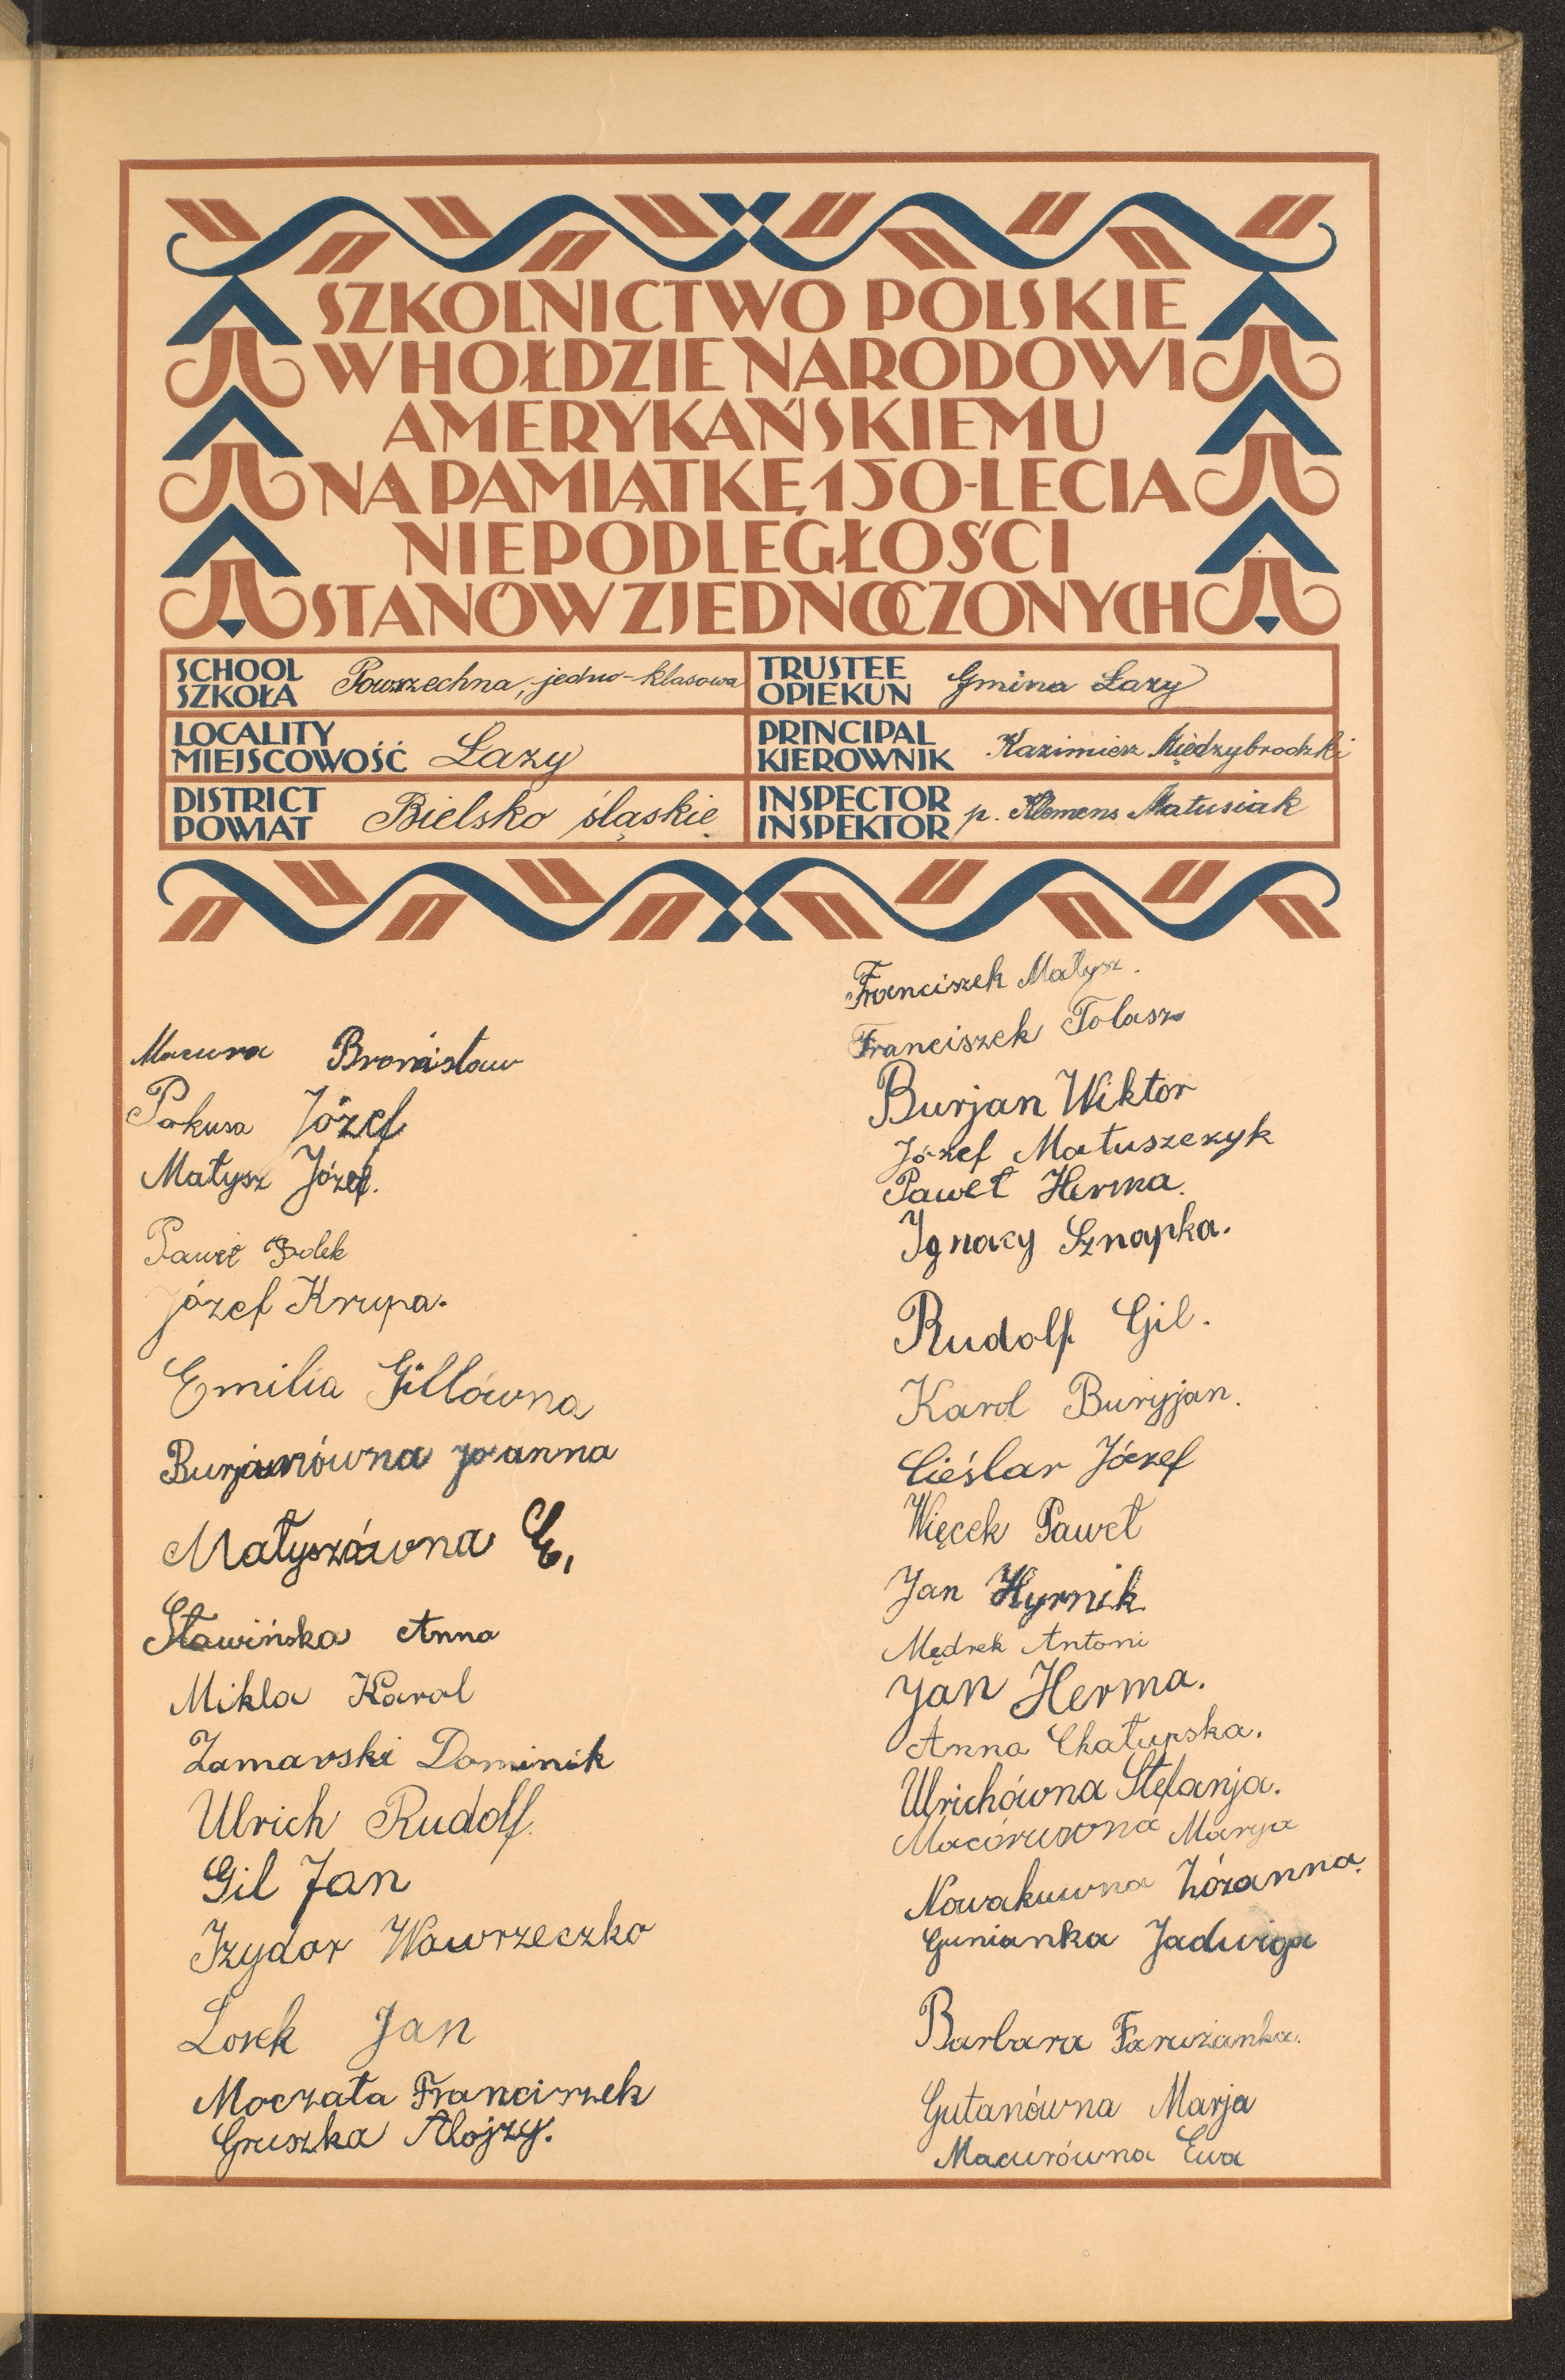 SZKOLNICTWO POLSKIE
W HOŁDZIE NARODOWI
AMERYKAŃSKIEMU
NA PAMIĄTKĘ 150-LECIA
NIEPODLEGŁOŚCI
STANÓW ZJEDNOCZONYCH
SCHOOL
SZKOŁA
Powszechna, jedno-klasowa
TRUSTEE
OPIEKUN
Gmina Łazy
LOCALITY
MIEJSCOWOŚĆ
Łazy
PRINCIPAL
KIEROWNIK
Kazimierz Międzybrodzki
DISTRICT
POWIAT
Bielsko śląskie
INSPECTOR
INSPEKTOR
p. Klemens Matusiak
Macura Bronisław
Pokusa Józef
Małysz Józef.
Paweł
Józef Krupa.
Emilia Gillówna
Burjanówna Joanna
Małyszówna E.
Sławińska Anna
Mikla Karol
Zamarski Dominik
Ulrich Rudolf.
Gil Jan
Izydor Wawrzeczko
Losek Jan
Moczała Franciszek
Gruszka Alojzy.
Franciszek Małysz.
Franciszek Tolasz
Burjan Wiktor
Józef Matuszczyk
Paweł Herma.
Ignacy Sznapka.
Rudolf Gil.
Karol Buryjan.
Cieślar Józef
Więcek Paweł
Jan Hyrnik
Mędrek Antoni
Jan Herma.
Anna Chałupska.
Ulrichówna Stefanja.
Marya
Nowakuwna Zózanna.
Gunianka Jadwiga
Barbara Faruzanka.
Gutanówna Marja
Macurówna Ewa